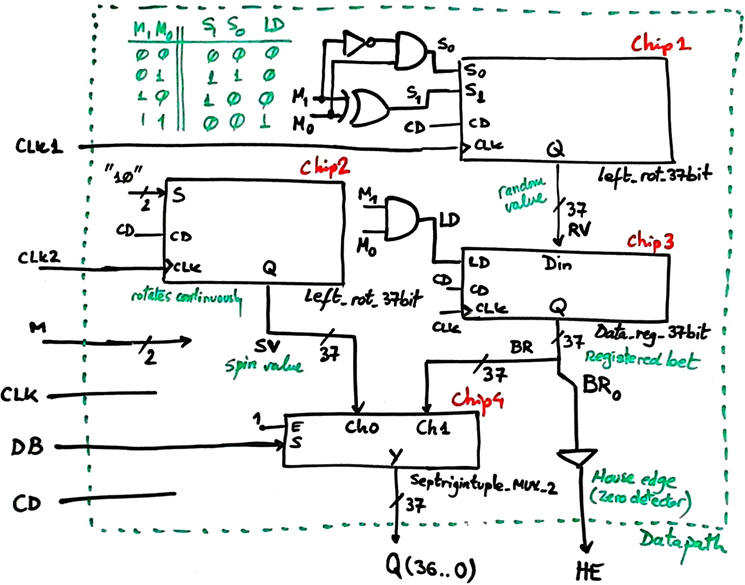 M₁ M₀ S₁ S₀ LD
0 0 0 0 0
0 1 1 1 0
1 0 1 0 0
1 1 0 0 1
Chip1
S₀
S₀
M₁
S₁
S₁
M₀
CD
CD
CLK1
CLK
Q
left_rot_37bit
Chip2
"10"
2
S
random
value
37
RV
M₁
LD
M₀
Chip3
CD
CD
CLK2
CLK
Q
rotates continuously
Left_rot_37bit
LD
Din
CD
CD
CLK
CLK
Q
Data_reg_37bit
M
2
SV
37
spin value
BR
37
37
Registered bet
CLK
BR₀
Chip4
1
E
Ch0
Ch1
DB
S
Y
Septrigintuple_MUX_2
House edge
(Zero detector)
CD
37
Datapath
Q(36..0)
HE